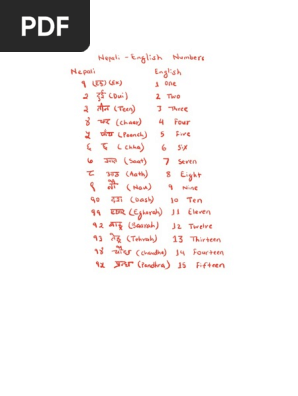 PDF
Nepali - English Numbers
Nepali English
१ (Ek) 1 One
२ दुई (Dui) 2 Two
३ तीन (Teen) 3 Three
४ चार (Chaar) 4 Four
५ पाँच (Paanch) 5 Five
६ छ (Chha) 6 Six
७ सात (Saat) 7 Seven
८ आठ (Aath) 8 Eight
९ नौ (Nau) 9 Nine
१० दश (Dash) 10 Ten
११ (Egharah) 11 Eleven
१२ (Baarah) 12 Twelve
१३ (Tehrah) 13 Thirteen
१४ (Chaudha) 14 Fourteen
१५ (Pandhra) 15 Fifteen